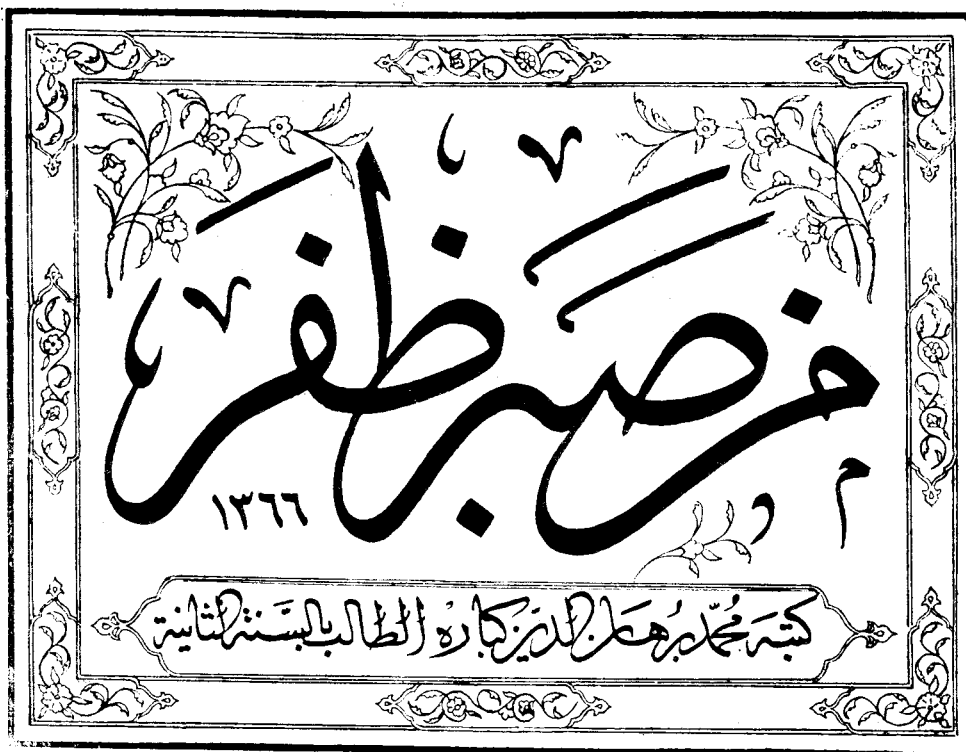 من صبر ظفر
١٣٦٦
كتبه محمد برهان الدين كباره الطالب بالسنة الثانية